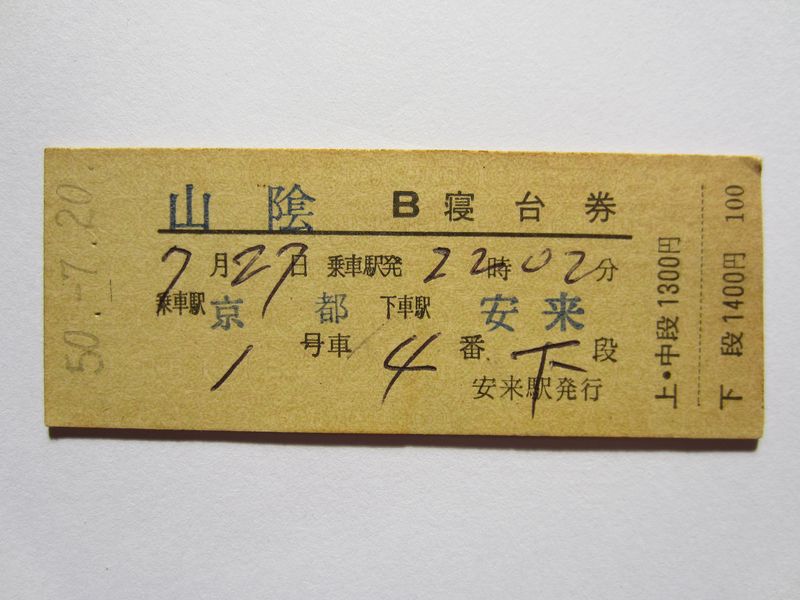 山陰 B寝台券
7月27日 乗車駅発 22時02分
乗車駅 京都 下車駅 安来
1号車 4番 下段
安来駅発行
上・中段1300円
下段1400円 100
50.-7.20